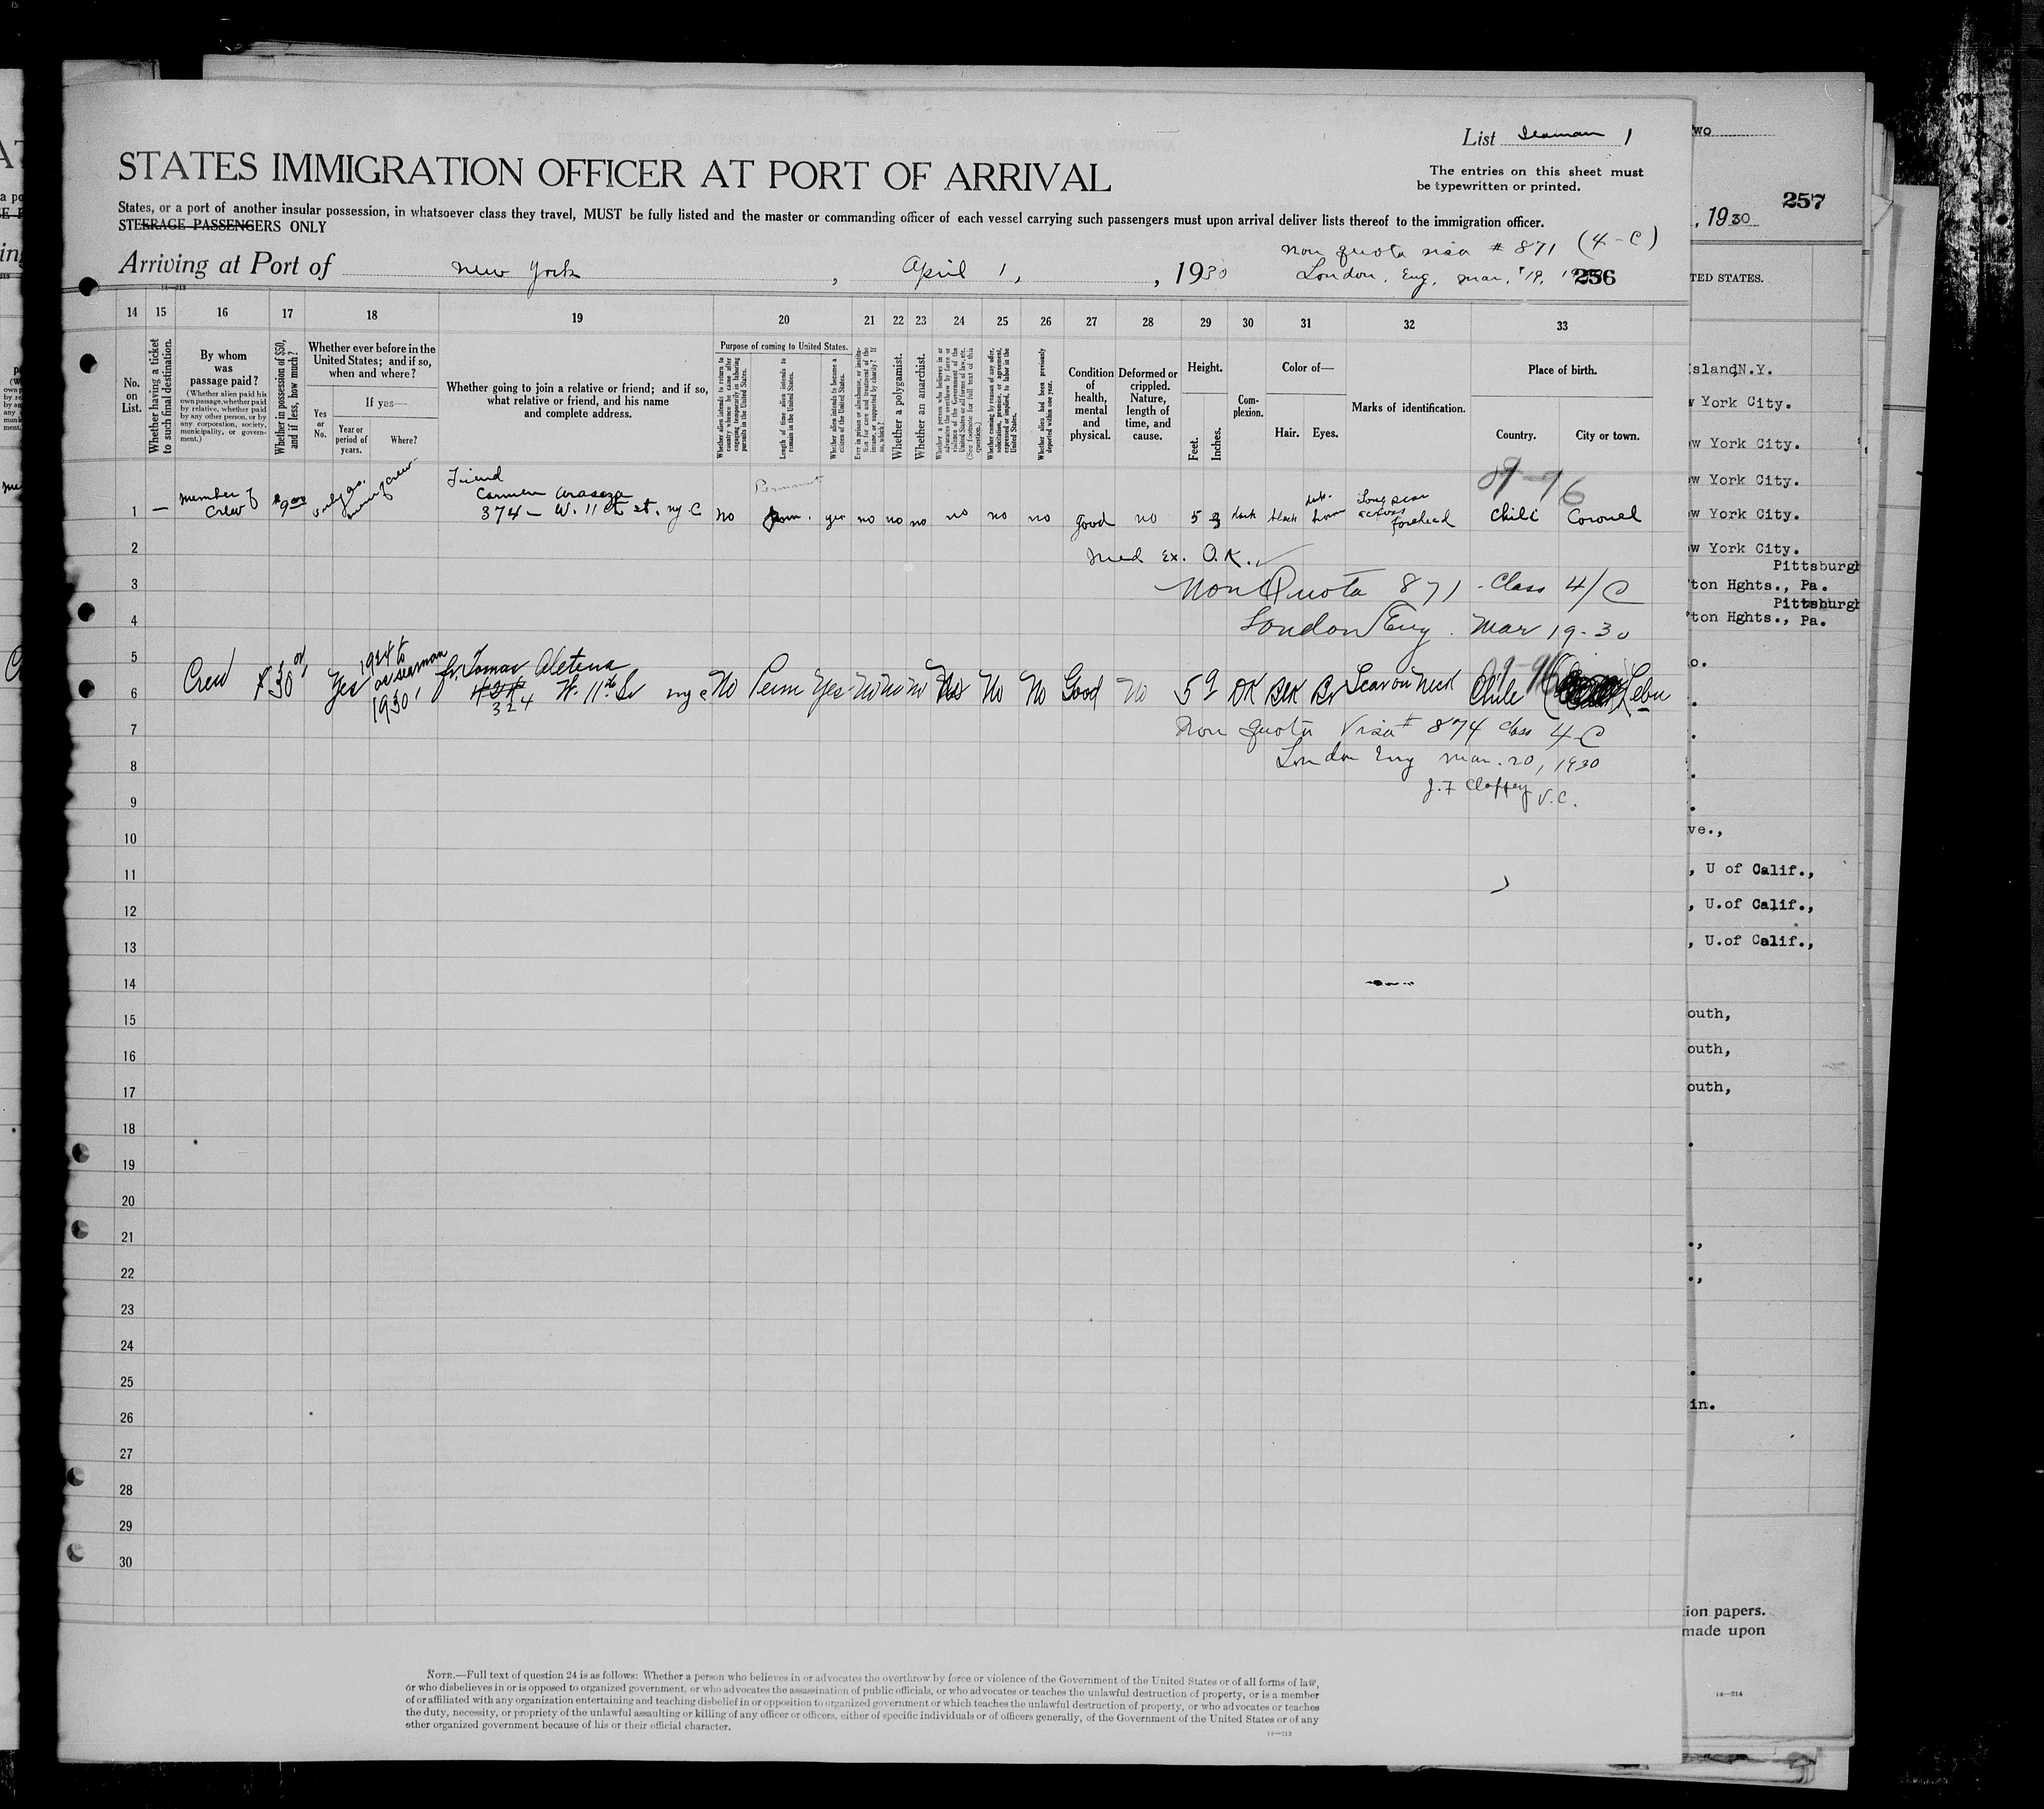 List Seaman 1
STATES IMMIGRATION OFFICER AT PORT OF ARRIVAL
The entries on this sheet must
be typewritten or printed.
States, or a port of another insular possession, in whatsoever class they travel, MUST be fully listed and the master or commanding officer of each vessel carrying such passengers must upon arrival deliver lists thereof to the immigration officer.
STEERAGE PASSENGERS ONLY
Non quota visa # 871 (4-C)
Arriving at Port of New York, April 1, , 1930
London, Eng, Mar. 19,
256
14 15 16 17 18 19 20 21 22 23 24 25 26 27 28 29 30 31 32 33
No. on List.
Whether having a ticket to such final destination.
By whom was passage paid?
(Whether alien paid his own passage, whether paid by relative, whether paid by any other person, or by any corporation, society, municipality, or government.)
Whether in possession of $50, and if less, how much?
Whether ever before in the United States; and if so, when and where?
Yes or No.
If yes—
Year or period of years.
Where?
Whether going to join a relative or friend; and if so, what relative or friend, and his name and complete address.
Purpose of coming to United States.
Whether alien intends to return to country whence he came after engaging temporarily in laboring pursuits in the United States.
Length of time alien intends to remain in the United States.
Whether alien intends to become a citizen of the United States.
Ever in prison or almshouse, or institution for care and treatment of the insane, or supported by charity? If so, which?
Whether a polygamist.
Whether an anarchist.
Whether a person who believes in or advocates the overthrow by force or violence of the Government of the United States or all forms of law, etc. (See footnote for full text of this question.)
Whether coming by reason of any offer, solicitation, promise, or agreement, expressed or implied, to labor in the United States.
Whether alien had been previously deported within one year.
Condition of health, mental and physical.
Deformed or crippled. Nature, length of time, and cause.
Height.
Feet.
Inches.
Complexion.
Color of—
Hair.
Eyes.
Marks of identification.
Place of birth.
Country.
City or town.
Permanent
1 — member of crew $9.00 Friend
374 - W. 11 st, ny C no perm. yes no no no no no no good no 5 3 dark black dark brown Long scar across forehead Chili Coronel
2 Med Ex. O.K.
3 Non Quota 871 - Class 4/C
4 London Eng. Mar 19-30
5
6 Crew $30 Yes 1924 to 1930 as seaman fr. Tomas
324 W. 11th St ny c No Perm Yes No No No No No No Good No 5 9 DK BLK Br Scar on neck Chile Lebu
7 Non quota Visa # 874 class 4-C
8 London Eng Mar. 20, 1930
9 V.C.
10
11
12
13
14
15
16
17
18
19
20
21
22
23
24
25
26
27
28
29
30
NOTE.—Full text of question 24 is as follows: Whether a person who believes in or advocates the overthrow by force or violence of the Government of the United States or of all forms of law,
or who disbelieves in or is opposed to organized government, or who advocates the assassination of public officials, or who advocates or teaches the unlawful destruction of property, or is a member
of or affiliated with any organization entertaining and teaching disbelief in or opposition to organized government or which teaches the unlawful destruction of property, or who advocates or teaches
the duty, necessity, or propriety of the unlawful assaulting or killing of any officer or officers, either of specific individuals or of officers generally, of the Government of the United States or of any
other organized government because of his or their official character.
14—213
257
, 1930
TED STATES.
Island, N.Y.
w York City.
ew York City.
ew York City.
ew York City.
ew York City.
Pittsburgh
ton Hghts., Pa.
Pittsburgh
ton Hghts., Pa.
ve.,
, U of Calif.,
, U.of Calif.,
, U.of Calif.,
outh,
outh,
outh,
in.
tion papers.
made upon
14—214